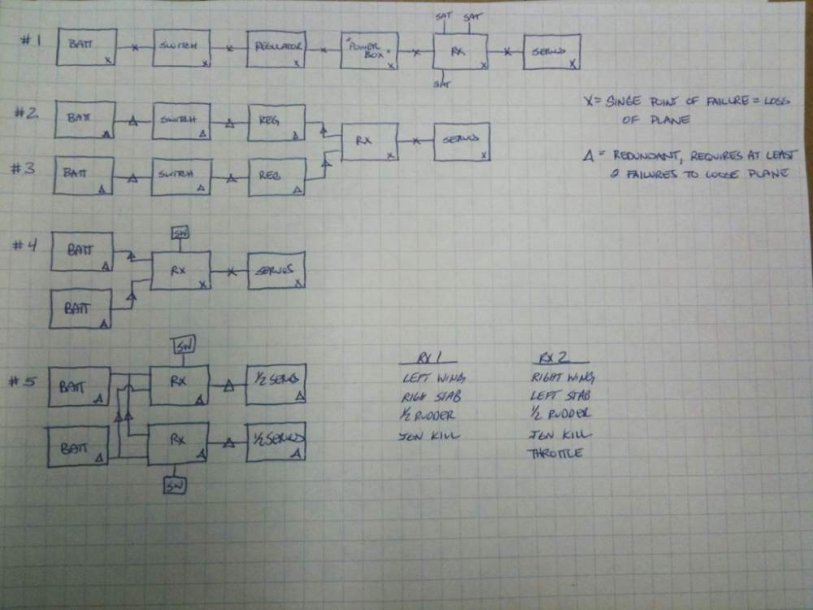 SAT SAT
#1 BATT X X SWITCH X X REGULATOR X X "POWER BOX" X X RX X X SERVOS X
SAT
X = SINGE POINT OF FAILURE = LOSS
OF PLANE
#2 BATT Δ Δ SWITCH Δ Δ REG Δ Δ
RX X X SERVOS X
Δ = REDUNDANT, REQUIRES AT LEAST
2 FAILURES TO LOOSE PLANE
#3 BATT Δ Δ SWITCH Δ Δ REG Δ Δ
SW
#4 BATT Δ Δ RX X X SERVOS X
BATT Δ Δ
SW
#5 BATT Δ RX Δ Δ 1/2 SERVO Δ
Δ Δ
BATT Δ RX Δ Δ 1/2 SERVO Δ
SW
RX 1
LEFT WING
RIGH STAB
1/2 RUDDER
IGN KILL
RX 2
RIGHT WING
LEFT STAB
1/2 RUDDER
IGN KILL
THROTTLE